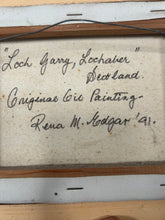 "Loch Garry, Lochaber"
Scotland.
Original Oil Painting.
Rena M. Edgar '91.